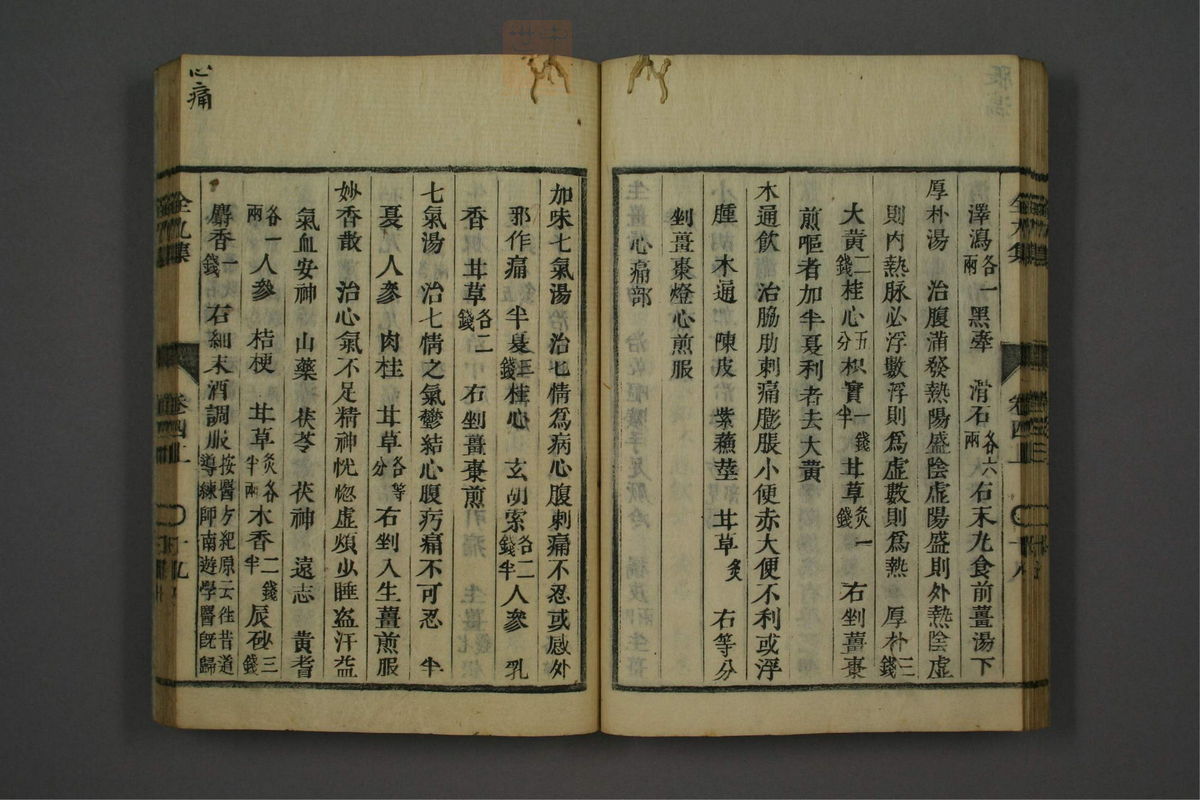 澤瀉各一兩 黑牽 滑石各六兩 右末丸食前薑湯下
厚朴湯 治腹滿發熱陽盛陰虛陽盛則外熱陰虛
則內熱脉必浮數浮則爲虛數則爲熱 厚朴三錢
大黃二錢 桂心五分 枳實一錢半 甘草炙一錢 右剉薑棗
煎嘔者加半夏利者去大黃
木通飲 治脇肋刺痛膨脹小便赤大便不利或浮
腫 木通 陳皮 紫蘇莖 甘草炙 右等分
剉薑棗燈心煎服
心痛部
加味七氣湯 治七情爲病心腹刺痛不忍或感外
邪作痛 半夏三錢 桂心 玄胡索各二錢半 人參 乳
香 甘草各二錢 右剉薑棗煎
七氣湯 治七情之氣鬱結心腹疞痛不可忍 半
夏 人參 肉桂 甘草各等分 右剉入生薑煎服
妙香散 治心氣不足精神恍惚虛煩少睡盜汗益
氣血安神 山藥 茯苓 茯神 遠志 黃耆
各一兩 人參 桔梗 甘草炙各半兩 木香二錢半 辰砂三錢
麝香一錢 右細末酒調服 按醫方紀原云往昔道
導練師南遊學醫旣歸
心痛
卷四上
十九
卷四上
十八